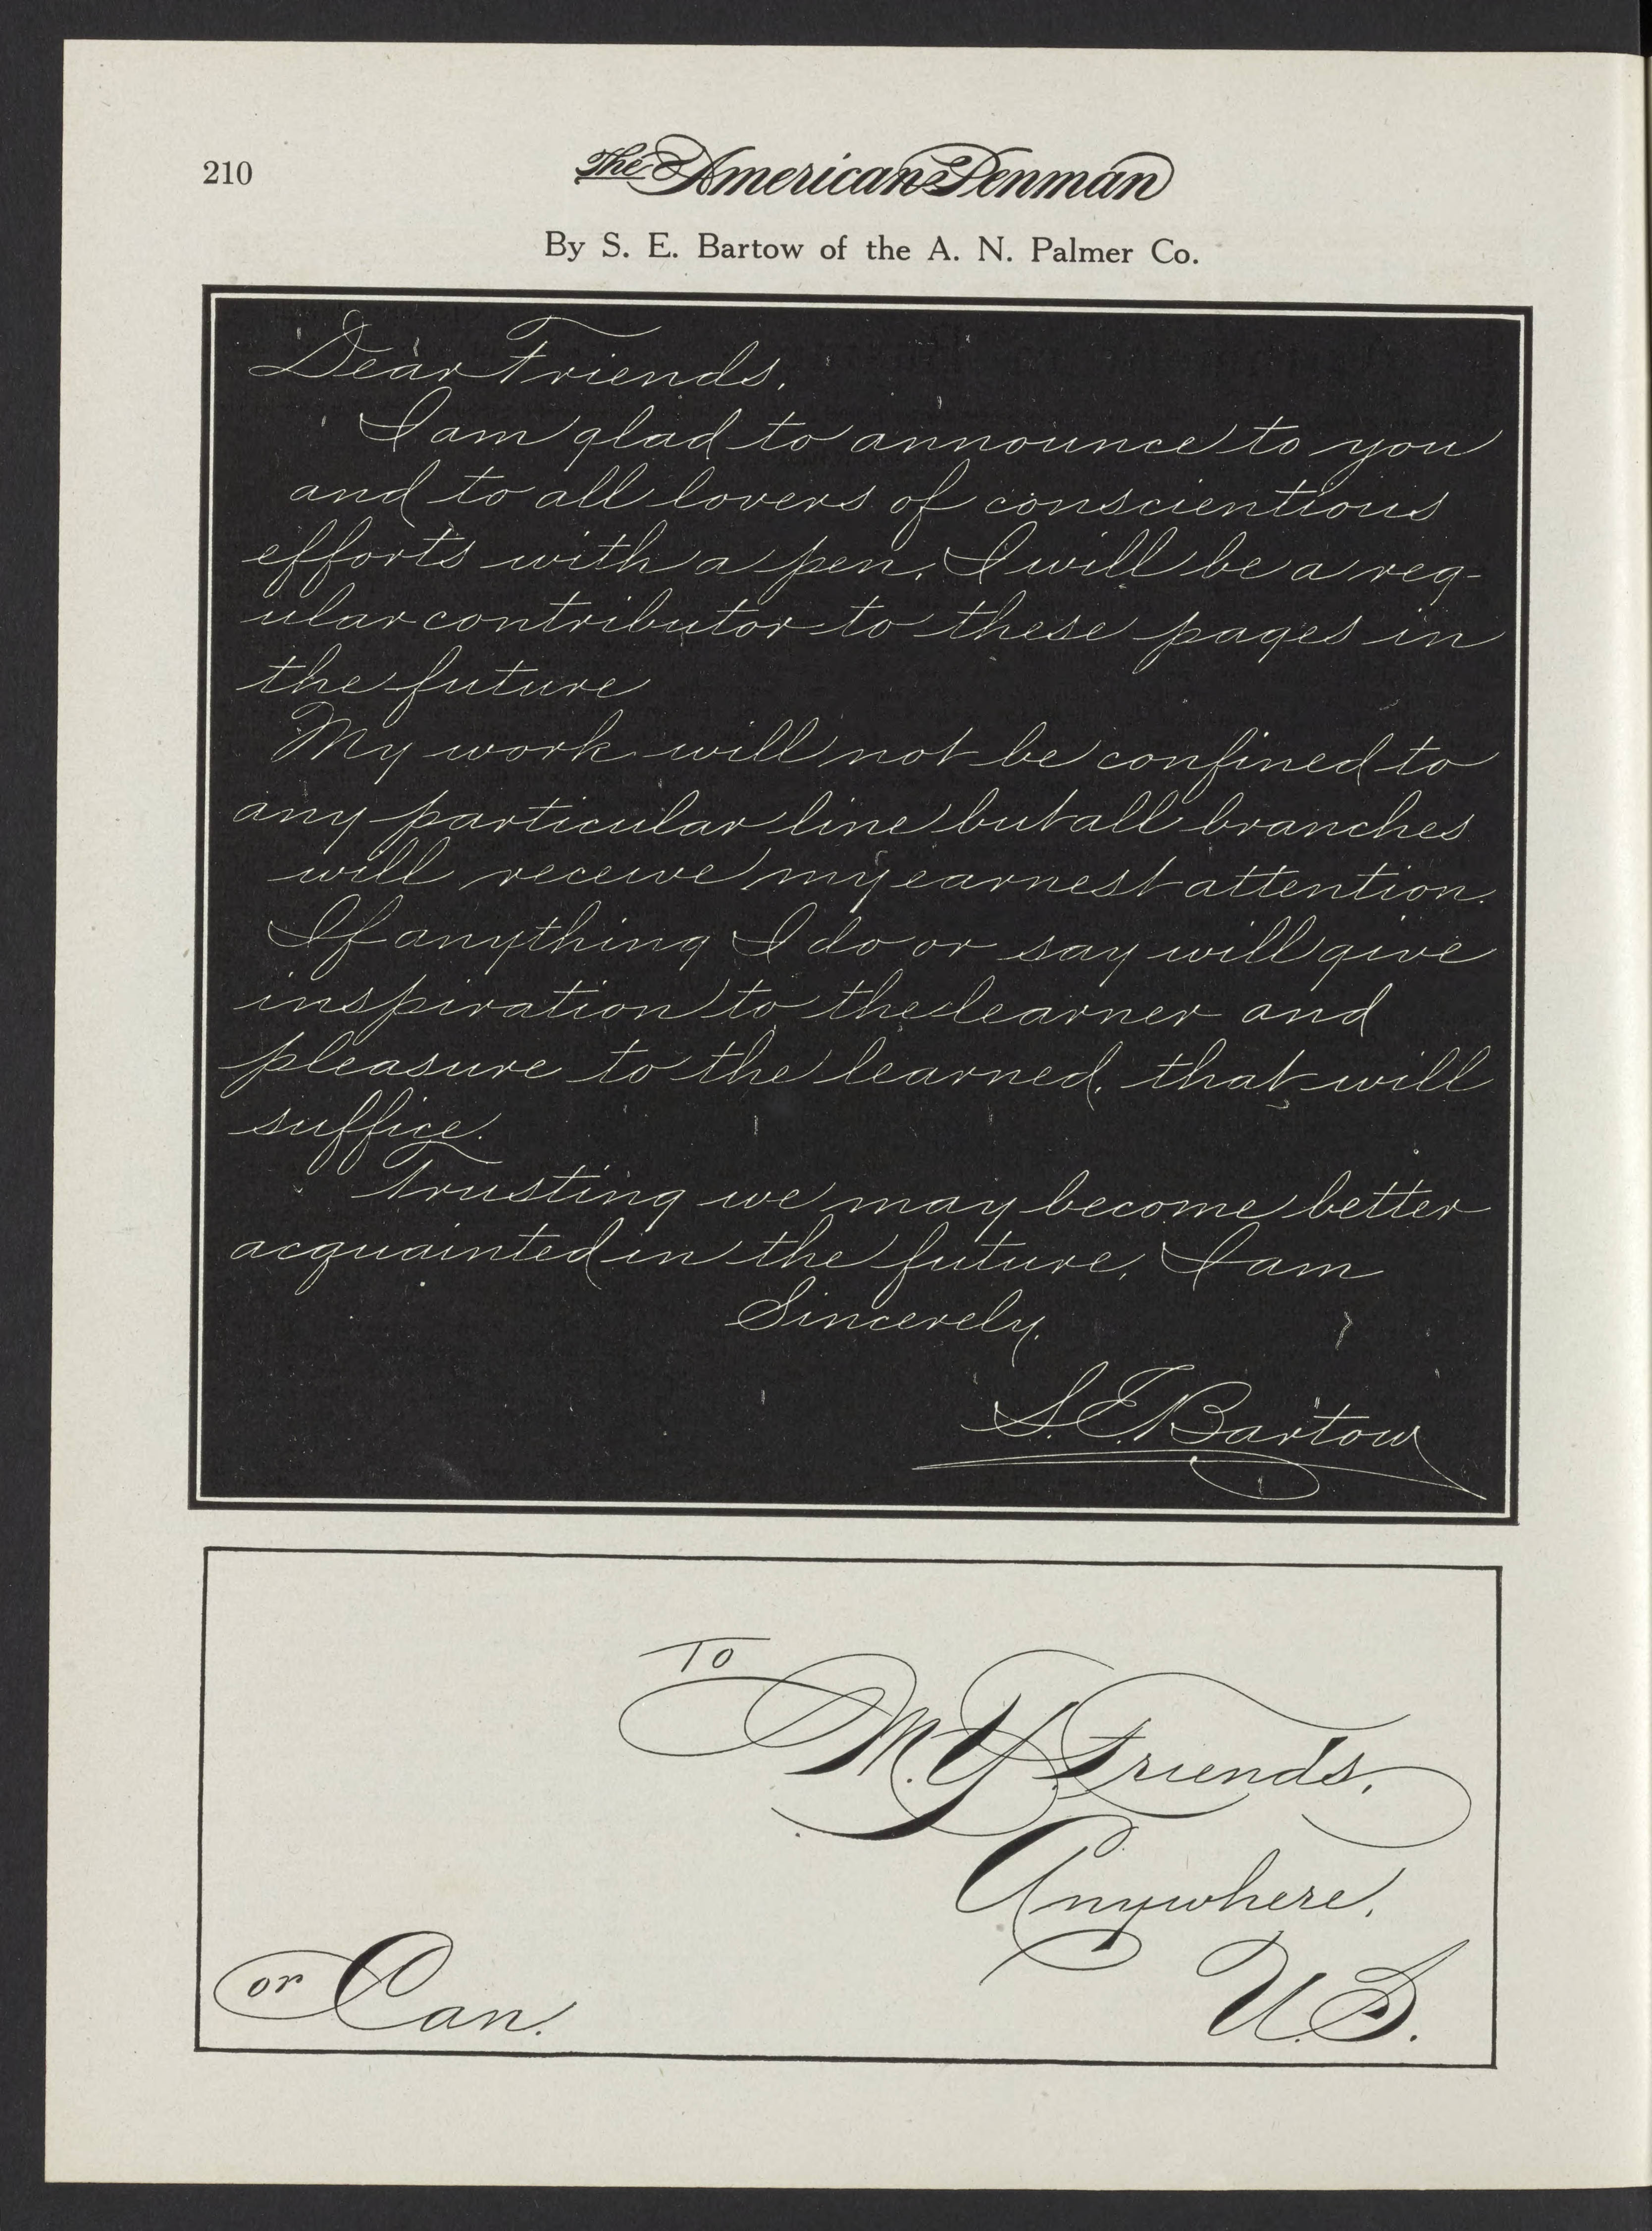 210
The American Penman
By S. E. Bartow of the A. N. Palmer Co.
Dear Friends,
I am glad to announce to you
and to all lovers of conscientious
efforts with a pen, I will be a reg-
ular contributor to these pages in
the future
My work will not be confined to
any particular line but all branches
will receive my earnest attention.
If anything I do or say will give
inspiration to the learner and
pleasure to the learned, that will
suffice.
Trusting we may become better
acquainted in the future, I am
Sincerely,
S. E. Bartow
To
M. Y. Friends,
Anywhere,
or Can.
U. S.